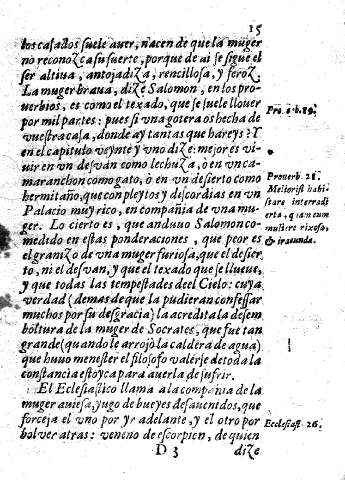 15
los casados suele auer, nacen de que la muger
no reconozca su suerte, porque de ai se sigue el
ser altiua, antojadiza, renzillosa, y feroz.
La muger braua, dize Salomon, en los pro-
uerbios, es como el texado, que se suele llouer
por mil partes: pues si una gotera os hecha de
vuestra casa, donde ay tantas que hareys? Y
en el capitulo veynte y uno dize: mejor es vi-
uir en un desvan como lechuza, ò en un ca-
maranchon como gato, ò en un desierto como
hermitaño, que con pleytos y discordias en un
Palacio muy rico, en compañia de una mu-
ger. Lo cierto es, que anduuo Salomon co-
medido en estas ponderaciones, que peor es
el granizo de una muger furiosa, que el desier
to, ni el desvan, y que el texado que se llueue,
y que todas las tempestades del Cielo: cuya
verdad (demas de que la pudieran confessar
muchos por su desgracia) la acredita la desem
boltura de la muger de Socrates, que fue tan
grande (quando le arrojò la caldera de agua)
que huuo menester el filosofo valerse de toda la
constancia estoyca para auerla de sufrir.
El Eclesiastico llama a la compañia de la
muger auiesa, yugo de bueyes desauenidos, que
forceja el uno por yr adelante, y el otro por
boluer atras: veneno de escorpion, de quien
D 3 dize
Pro. c. b. 19.
Prouerb. 21.
Melior est habi
tare in terra di
erta, quam cum
muliere rixosa,
& iracunda.
Ecclesiast. 26.